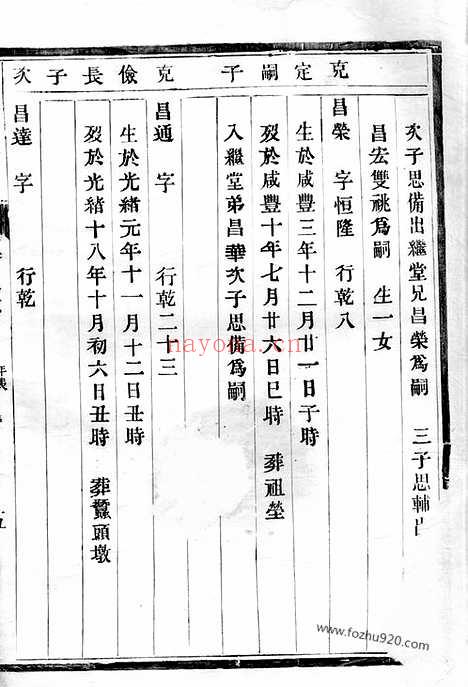 克定嗣子
克儉長子
次
次子思備出繼堂兄昌榮爲嗣 三子思輔出
昌宏雙祧爲嗣 生一女
昌榮 字恒隆 行乾八
生於咸豐三年十二月廿一日子時
歿於咸豐十年七月廿六日巳時 葬祖塋
入繼堂弟昌華次子思備爲嗣
昌通 字 行乾二十三
生於光緒元年十一月十二日丑時
歿於光緒十八年十月初六日丑時 葬蠶頭墩
昌達 字 行乾
nayona.cn
www.fozhu920.com